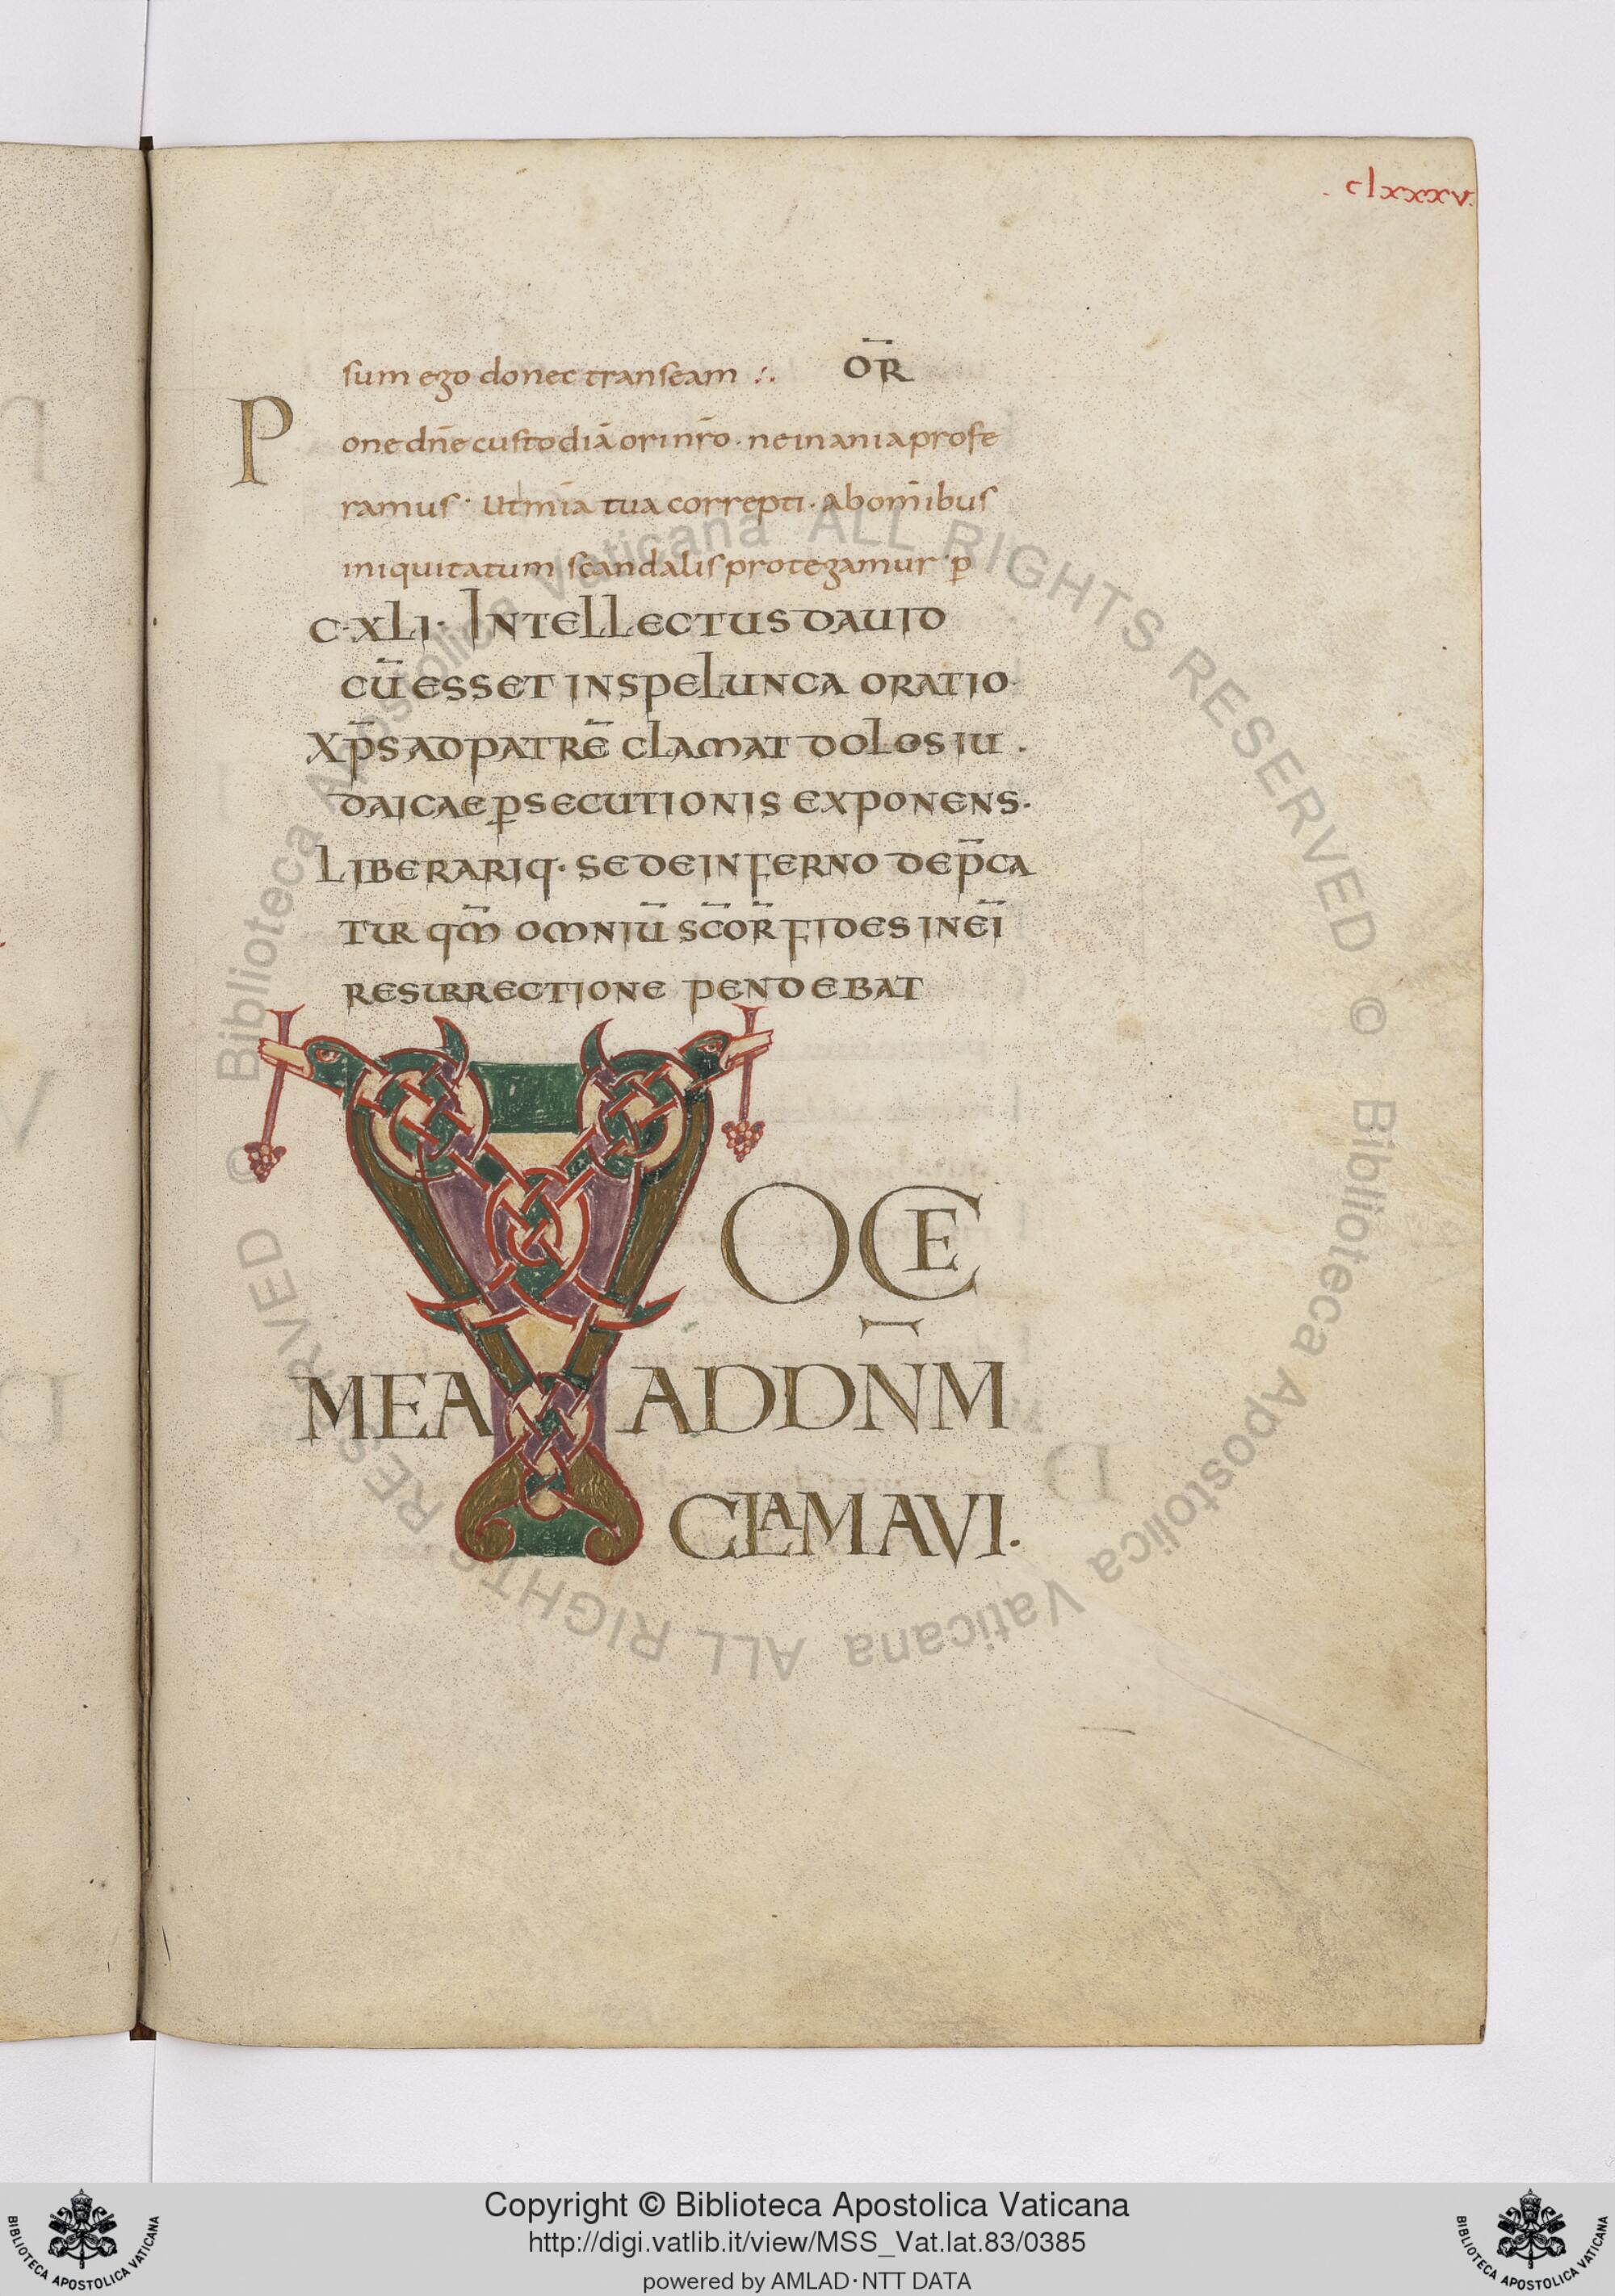 . clxxxv.
sum ego donec transeam :. OR̄
P one dn̄e custodiā ori nr̄o · ne inania profe
ramus · ut mīa tua correpti · ab om̄ibus
iniquitatum scandalis protegamur · p̄
C·XLI· INTELLECTUS DAUID
CŪ ESSET IN SPELUNCA ORATIO·
XP̄S AD PATRĒ CLAMAT DOLOS IU .
DAICAE PSECUTIONIS EXPONENS·
LIBERARIQ· SE DE INFERNO DEP̄CA
TUR QM̄ OMNIŪ SC̄OR̄ FIDES IN EĪ
RESURRECTIONE PENDEBAT
VOCE
MEA AD DN̄M
CLAMAVI.
© Biblioteca Apostolica Vaticana ALL RIGHTS RESERVED © Biblioteca Apostolica Vaticana ALL RIGHTS RESERVED
Copyright © Biblioteca Apostolica Vaticana
http://digi.vatlib.it/view/MSS_Vat.lat.83/0385
powered by AMLAD·NTT DATA
BIBLIOTECA APOSTOLICA VATICANA
BIBLIOTECA APOSTOLICA VATICANA